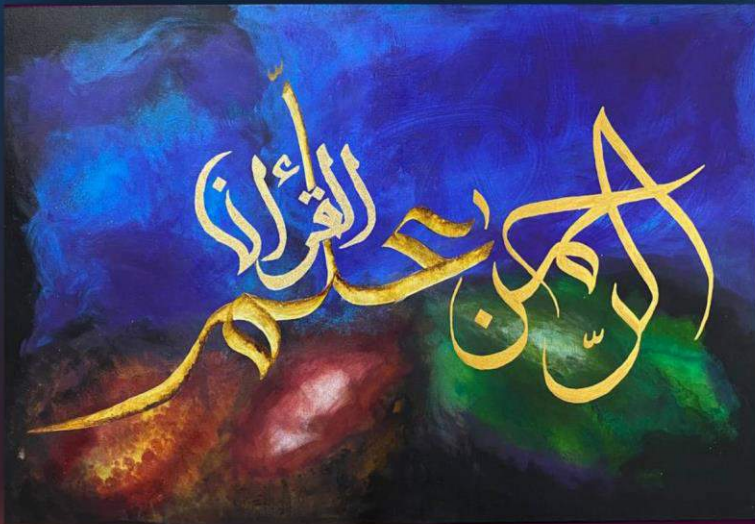 الرّحمن
علّم
القرأن